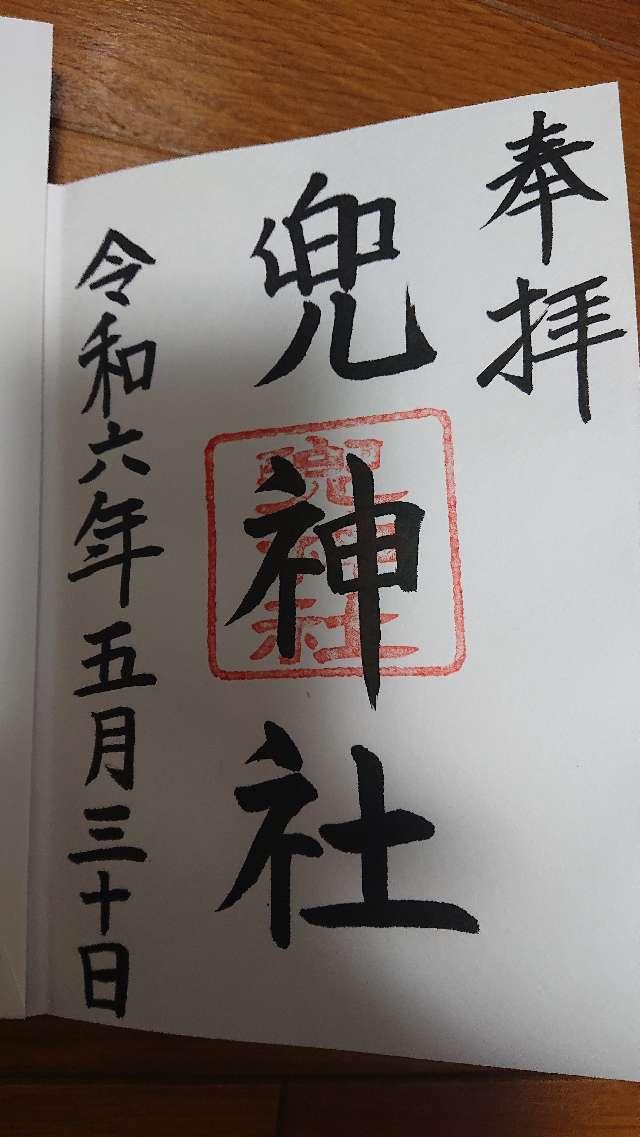 奉拝
兜神社
兜神社
令和六年五月三十日